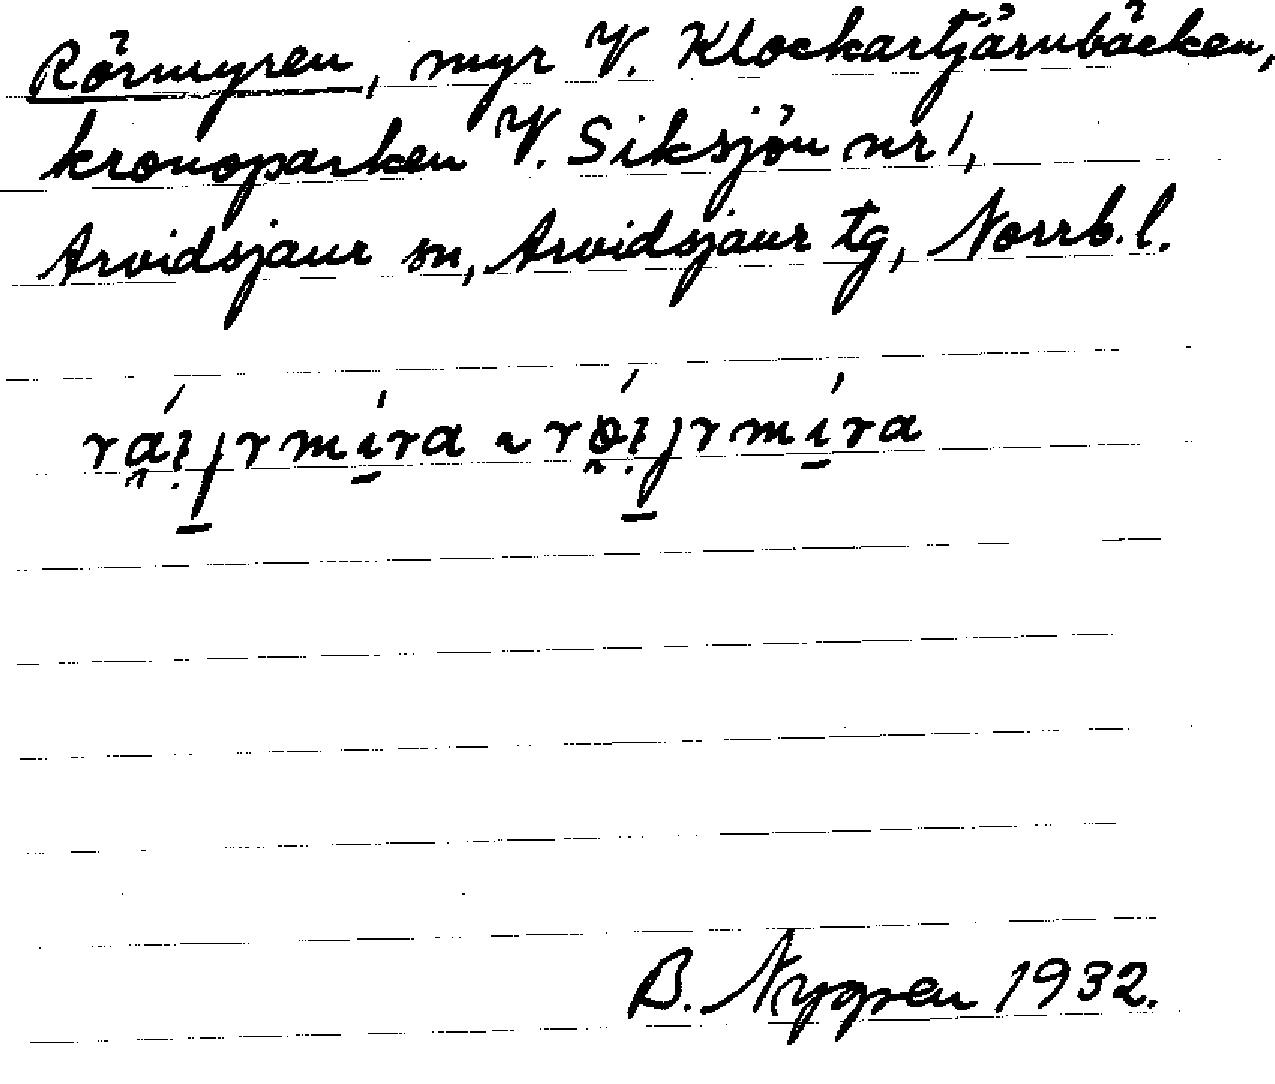 Rörmyren, myr V. Klockartjärnbäcken,
kronoparken V. Siksjön nr 1,
Arvidsjaur sn, Arvidsjaur tg, Norrb.l.
B. Nygren 1932.